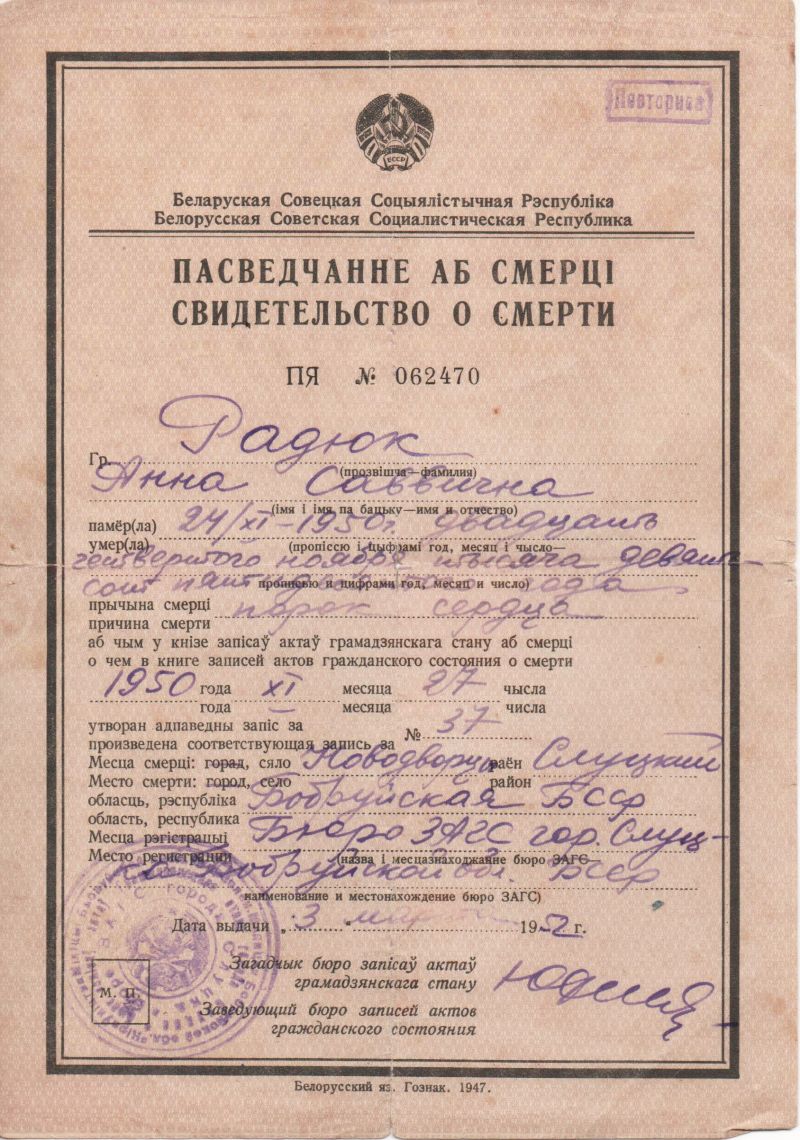 Повторное
БССР
Беларуская Совецкая Соцыялістычная Рэспубліка
Белорусская Советская Социалистическая Республика
ПАСВЕДЧАННЕ АБ СМЕРЦІ
СВИДЕТЕЛЬСТВО О СМЕРТИ
ПЯ № 062470
Гр. Радюк
(прозвішча—фамилия)
Анна Саввична
(імя і імя па бацьку—имя и отчество)
памёр(ла) 24/XI-1950г. двадцать
умер(ла)
(пропіссю і цыфрамі год, месяц і чысло—
четвертого ноября тысяча девять-
прописью и цифрами год, месяц и число)
сот пятидесятого года
прычына смерці
причина смерти порок сердца
аб чым у кнізе запісаў актаў грамадзянскага стану аб смерці
о чем в книге записей актов гражданского состояния о смерти
1950 года XI месяца 27 чысла
года месяца числа
утворан адпаведны запіс за
произведена соответствующая запись за № 37
Месца смерці: горад, сяло Новодворцы раён Слуцкий
Место смерти: город, село район
обласць, рэспубліка Бобруйская БССР
область, республика
Месца рэгістрацыі Бюро ЗАГС гор. Слуц-
Место регистрации
(назва і месцазнаходжанне бюро ЗАГС—
ка Бобруйской обл. БССР
наименование и местонахождение бюро ЗАГС)
Дата выдачи „3" марта 1952 г.
Загадчык бюро запісаў актаў
грамадзянскага стану
М. П.
Заведующий бюро записей актов
гражданского состояния
Белорусский яз. Гознак. 1947.